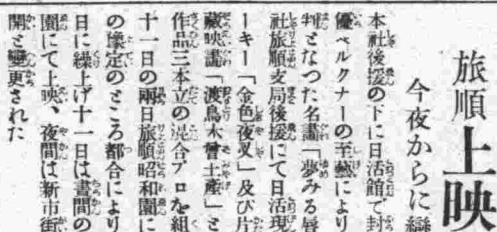 旅順上映
今夜からに變
本社後援の下に日活館で封
優ベルクナーの至藝により
判となつた名畫「夢みる唇
社旅順支局後援にて日活現
ーキー「金色夜叉」及び片
藏映畫「渡鳥木曾土産」と
作品三本立の混合プロを組
十一日の兩日旅順昭和園に
の豫定のところ都合により
日に繰上げ十一日は晝間の
園にて上映、夜間は新市街
開と變更された